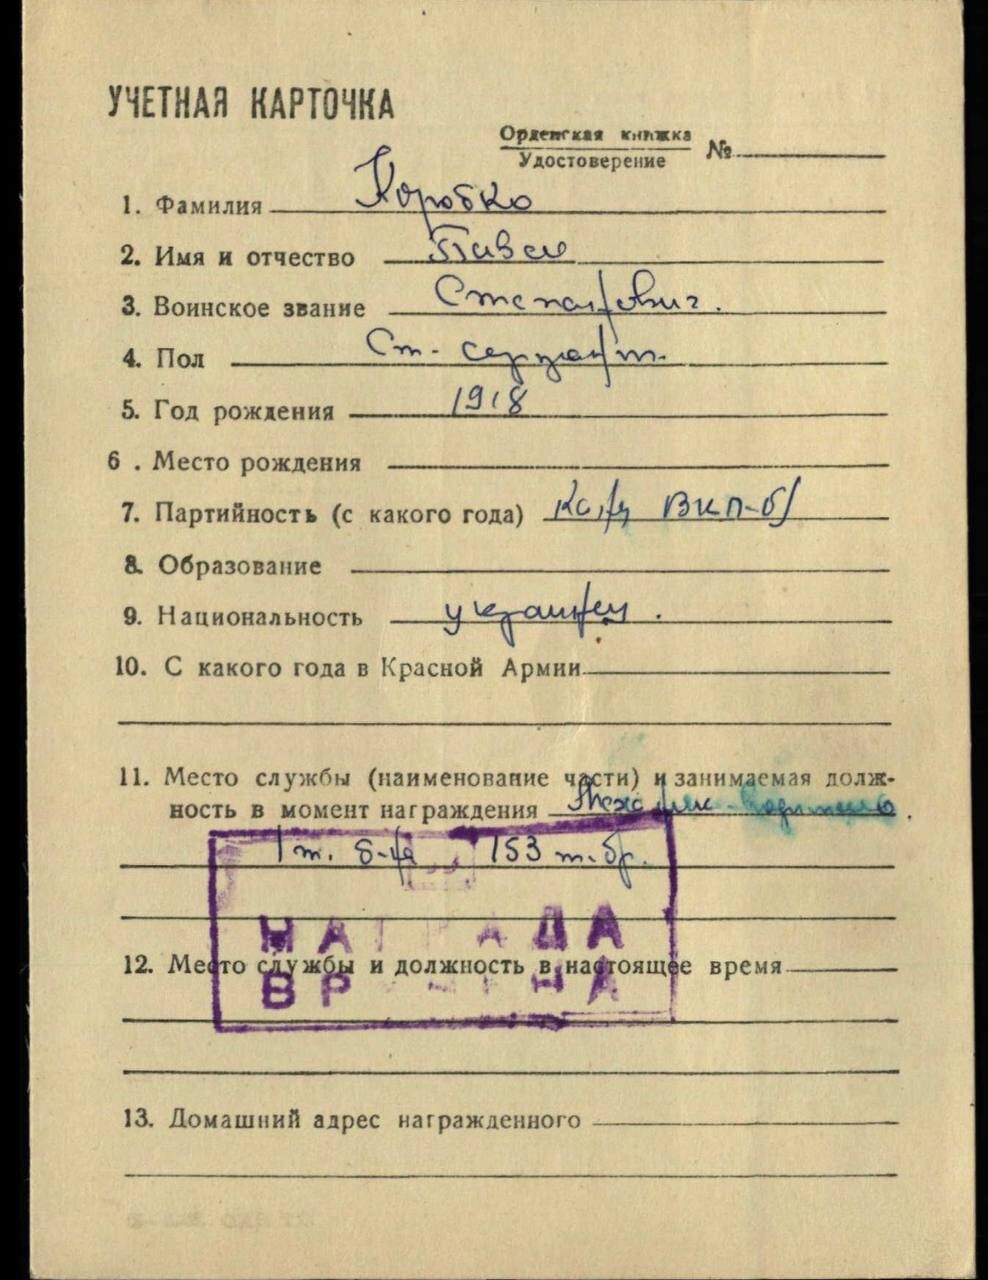 УЧЕТНАЯ КАРТОЧКА
Орденская книжка
Удостоверение №
1. Фамилия Коробко
2. Имя и отчество Павел
3. Воинское звание Степанович.
4. Пол Ст. сержант.
5. Год рождения 1918
6. Место рождения
7. Партийность (с какого года) Канд ВКП-б/
8. Образование
9. Национальность украинец.
10. С какого года в Красной Армии
11. Место службы (наименование части) и занимаемая долж-
ность в момент награждения Механик-водитель
1 т. б-на 153 т. бр.
НАГРАДА
12. Место службы и должность в настоящее время
ВРУЧЕНА
13. Домашний адрес награжденного